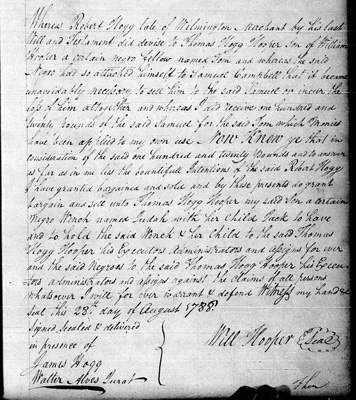 Whereas Robert Hogg late of Wilmington Merchant by his last
Will and Testament did devise to Thomas Hogg Hooper Son of William
Hooper a certain negro Fellow named Tom and whereas the said
Negro had so attached himself to Samuel Campbell that it became
unavoidably necessary to sell him to the said Samuel or incur the
loss of him altogether and whereas I did receive one hundred and
twenty Pounds of the said Samuel for the said Tom which Monies
have been applied to my own use Now Know ye that in
consideration of the said one hundred and twenty Pounds and to answer
as far as in me lies the bountifull Intentions of the said Robert Hogg
I have granted bargained and sold and by these presents do grant
bargain and sell unto Thomas Hogg Hooper my said Son a certain
Negro Wench named Judah with her Child Jack to have
and to hold the said Wench & her Child to the said Thomas
Hogg Hooper his Executors Administrators and assigns for ever
and the said Negroes to the said Thomas Hogg Hooper his Execu-
tors administrators and assigns against the claims of all Persons
whatsoever I will for ever warrant & defend Witness my hand &
Seal this 28th day of August 1788.
Signed Sealed & delivered
in presence of
Will Hooper Seal
James Hogg
Walter Alves Jurat